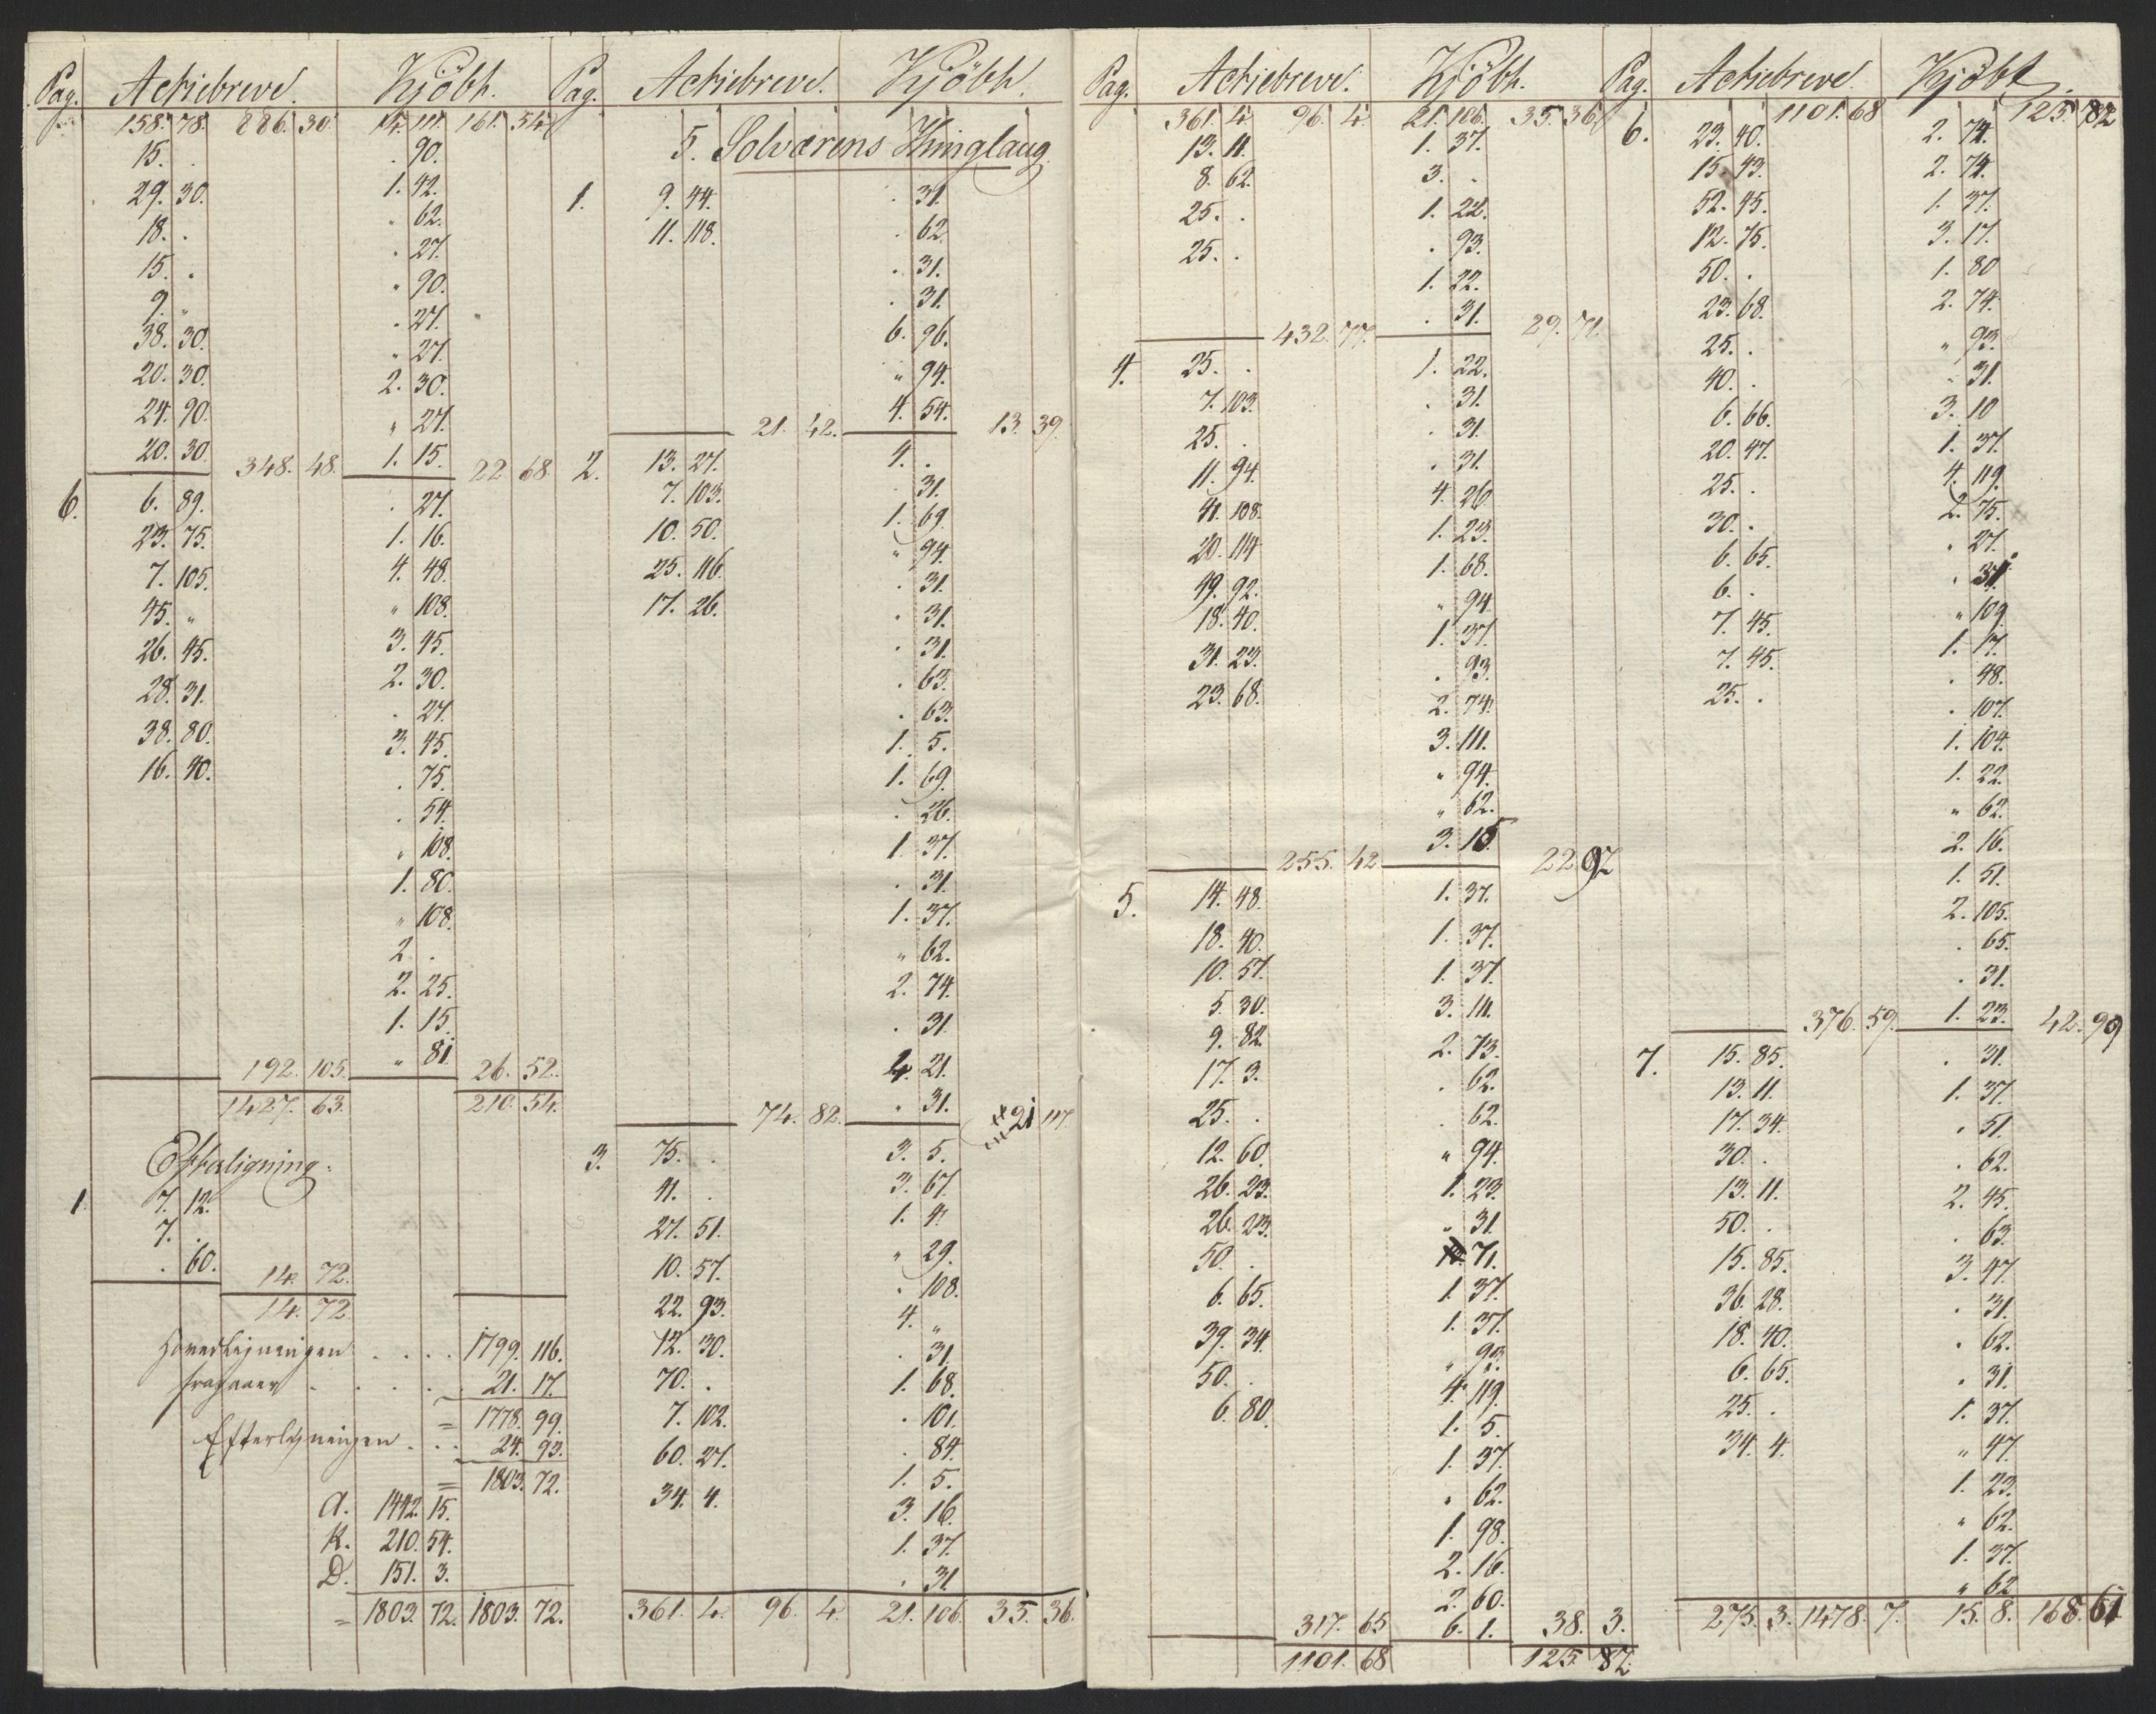 Pag. Actiebreve. Kjöbh.
158. 78. 886. 30. 14. 111. 161. 54.
15. . . 90.
29. 30. 1. 42.
18. . „ 62.
15. . . 27.
9. „ „ 90.
38. 30. . 27.
20. 30. „ 27.
24. 90. 2. 30.
20. 30. „ 27.
348. 48. 1. 15. 22. 68.
6. 6. 89. . 27.
23. 75. 1. 16.
7. 105. 4. 48.
45. „ „ 108.
26. 45. 3. 45.
28. 31. 2. 30.
38. 80. . 27.
16. 40. 3. 45.
. 75.
. 54.
„ 108.
1. 80.
„ 108.
2. .
2. 25.
1. 15.
„ 81.
192. 105. 26. 52.
1427. 63. 210. 54.
Efterligning.
1. 7. 12.
7. .
. 60. 14. 72.
14. 72.
Hovedligningen . . . . 1799. 116.
fragaaer . . . . . 21. 17.
= 1778. 99.
Efterligningen . . . 24. 93.
= 1803. 72.
A. 1442. 15.
K. 210. 54.
D. 151. 3.
= 1803. 72. 1803. 72.
Pag. Actiebreve. Kjöbh.
5. Solværens Thinglaug
1. 9. 44. . 31.
11. 118. . 62.
. 31.
. 31.
6. 96.
„ 94.
4. 54.
21. 42. 13. 39.
2. 13. 27. 4. .
7. 103. . 31.
10. 50. 1. 69.
25. 116. „ 94.
17. 26. . 31.
. 31.
. 31.
. 63.
. 63.
1. 5.
1. 69.
. 26.
1. 37.
. 31.
1. 37.
„ 62.
2. 74.
. 31.
4. 21.
„ 31.
74. 82. 21 117.
3. 75. . 3. 5.
41. . 3. 67.
27. 51. 1. 4.
10. 57. „ 29.
22. 93. . 108.
12. 30. 4. „
70. . . 31.
7. 102. 1. 68.
60. 27. . 101.
34. 4. . 84.
1. 5.
3. 16.
1. 37.
. 31
361. 4. 96. 4. 21. 106. 35. 36.
Pag. Actiebreve. Kjöbh.
361. 4. 96. 4. 21. 106. 35. 36.
13. 11. 1. 37.
8. 62. 3. .
25. . 1. 22.
25. . . 93.
1. 22.
. 31.
432. 77. 29. 71.
4. 25. . 1. 22.
7. 103. . 31.
25. . . 31.
11. 94. . 31.
41. 108. 4. 26
20. 114 1. 23.
49. 92. 1. 68.
18. 40. „ 94
31. 23. 1. 37.
23. 68. . 93.
2. 74.
3. 111.
„ 94.
„ 62.
3. 15.
255. 42. 22 92
5. 14. 48. 1. 37.
18. 40. 1. 37.
10. 57. 1. 37.
5. 30. 3. 111.
9. 82. 2. 73.
17. 3. . 62.
25. . . 62.
12. 60. „ 94.
26. 23. 1. 23.
26. 23. „ 31
50. . 71.
6. 65. 1. 37.
39. 34. 1. 37.
50. . „ 93.
6. 80. 4. 119.
1. 5.
1. 37.
„ 62.
1. 98.
2. 16.
2. 60.
317. 65 6. 1. 38. 3.
1101. 68 125. 82.
Pag. Actiebreve. Kjöbh.
1101. 68 125. 82
6. 23. 40. 2. 74.
15. 43. 2. 74.
52. 45. 1. 37.
12. 75. 3. 17.
50. . 1. 80
23. 68. 2. 74.
25. . „ 93.
40. . . 31.
6. 66. 3. 10
20. 47. 1. 37.
25. . 4. 119.
30. . 2. 75.
6. 65. . 27.
6. . . 31
7. 45. „ 109.
7. 45. 1. 17.
25. . . 48.
. 107.
1. 104.
1. 22.
„ 62.
2. 16.
1. 51.
2. 105.
. 65.
. 31.
1. 23.
376. 59. 42. 99
7. 15. 85. . 31.
13. 11. 1. 37.
17. 34. . 51.
30. . . 62.
13. 11. 2. 45.
50. . . 63.
15. 85. 3. 47.
36. 28. . 31.
18. 40. . 62.
6. 65. . 31.
25. . 1. 37.
34. 4. „ 47.
1. 23.
„ 62.
1. 37.
„ 62
275. 3. 1478. 7. 15. 8. 168. 61